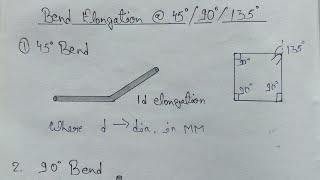 Bend Elongation @ 45°/90°/135°
① 45° Bend
135°
90°
1d elongation
90° 90°
Where d → dia, in MM
2. 90° Bend